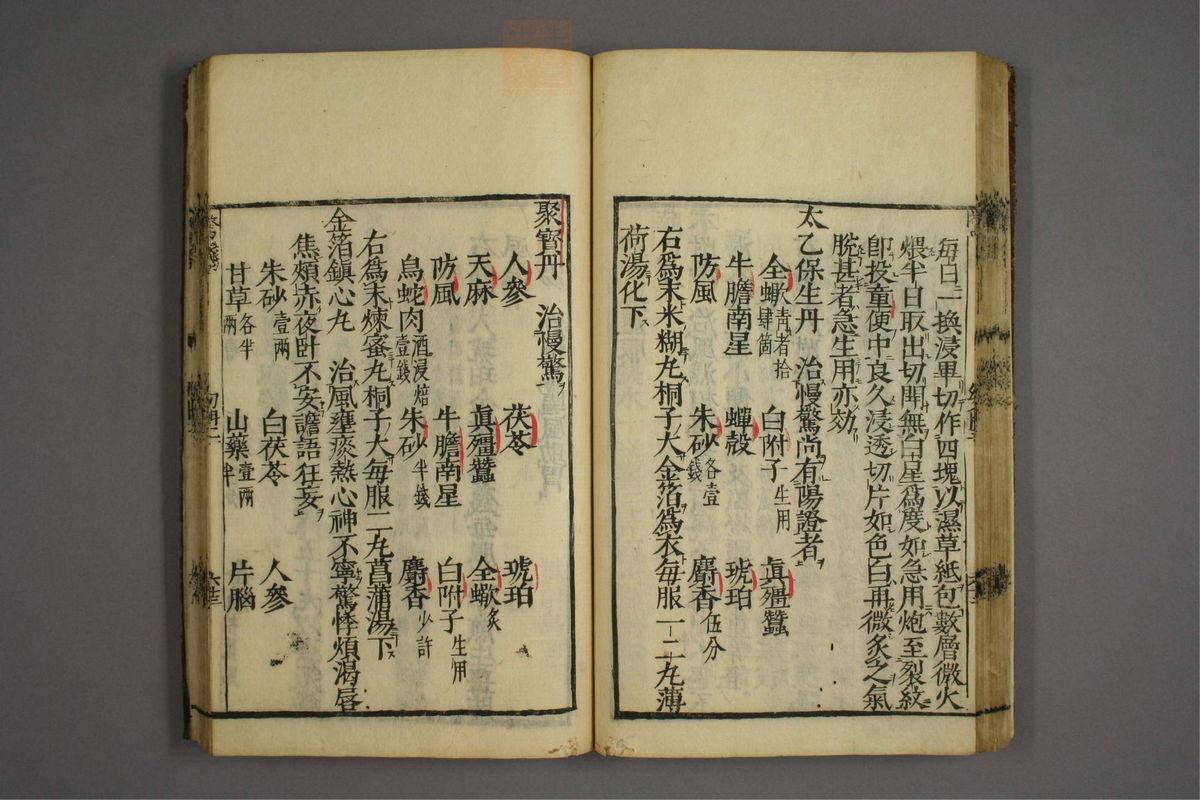 每日一換浸畢切作四塊以濕草紙包數層微火
煨半日取出切開無白星爲度如急用炮至裂紋
即投童便中良久浸透切片如色白再微炙之氣
脫甚者急生用亦効
太乙保生丹　治慢驚尚有陽證者
全蠍青者拾肆箇　白附子生用　眞殭蠶
牛膽南星　蟬殻　琥珀
防風　朱砂各壹錢　麝香伍分
右爲末米糊丸桐子大金箔爲衣毎服一二十丸薄
荷湯化下
聚寳丹　治慢驚
人參　茯苓　琥珀
天麻　眞殭蠶　全蠍炙
防風　牛膽南星　白附子生用
烏蛇肉酒浸焙壹錢　朱砂半錢　麝香少許
右爲末煉蜜丸桐子大毎服二丸菖蒲湯下
金箔鎮心丸　治風壅痰熱心神不寧驚悸煩渴唇
焦頰赤夜卧不安譫語狂妄
朱砂壹兩　白茯苓　人參
甘草各半兩　山藥壹兩半　片腦